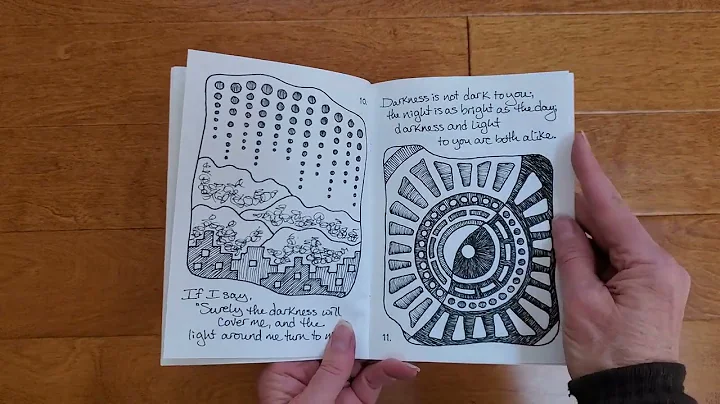 10.
If I say,
"Surely the darkness will
cover me, and the
light around me turn to
Darkness is not dark to you;
the night is as bright as the day;
darkness and light
to you are both alike.
11.